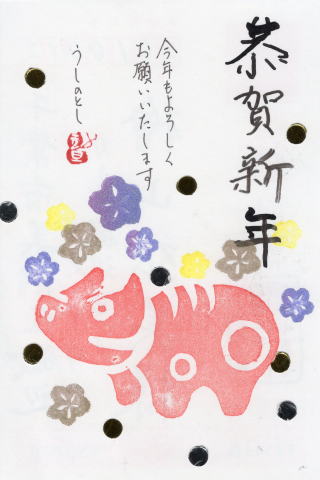 恭賀新年
今年もよろしく
お願いいたします
うしのとし
元旦